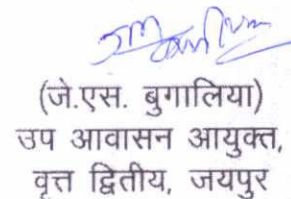 (जे.एस. बुगालिया)
उप आवासन आयुक्त,
वृत्त द्वितीय, जयपुर